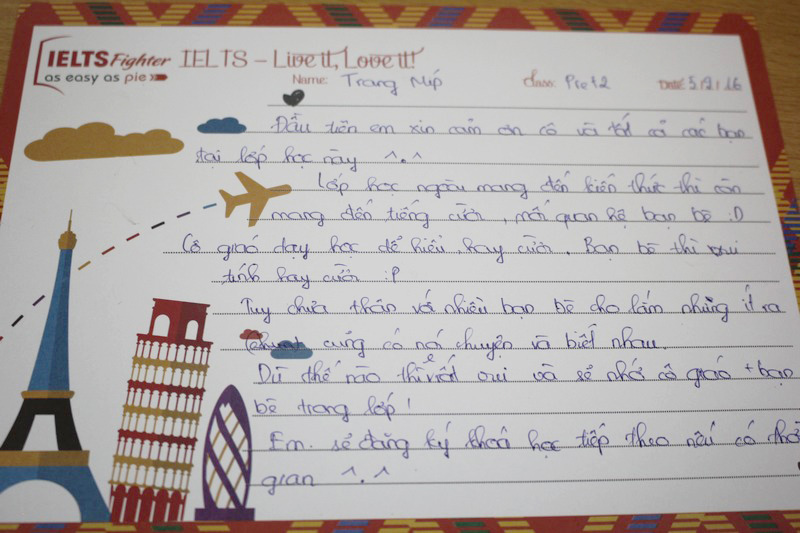 IELTS Fighter IELTS – Live it, Love it!
as easy as pie
Name: Trang Míp Class: Pre 12 Date: 5/2/16
Đầu tiên em xin cảm ơn cô và tất cả các bạn
tại lớp học này ^.^
Lớp học ngoài mang đến kiến thức thì còn
mang đến tiếng cười, mối quan hệ bạn bè :D
Cô giáo dạy học dễ hiểu, hay cười. Bạn bè thì vui
tính hay cười :P
Tuy chưa thân với nhiều bạn bè cho lắm nhưng ít ra
cũng có nói chuyện và biết nhau.
Dù thế nào thì rất vui và sẽ nhớ cô giáo + bạn
bè trong lớp!
Em sẽ đăng ký khoá học tiếp theo nếu có thời
gian ^.^